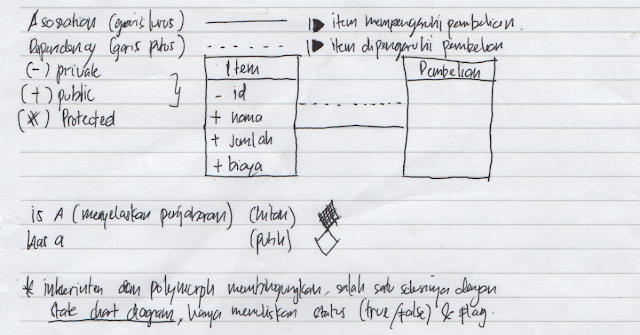 Asosiation (garis lurus) item mempengaruhi pembelian.
Dependancy (garis putus) item dipengaruhi pembelian
(-) private
(+) public
(*) Protected
Item
- id
+ nama
+ jumlah
+ biaya
Pembelian
is A (menjelaskan penjabaran) (hitam)
has a (putih)
* inheriten dan polymorph membingungkan, salah satu solusinya dengan
state chart diagram, hanya menuliskan status (true/false) & flag.